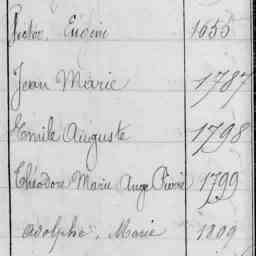 Victor, Eugène 1655
Jean Marie 1787
Emile Auguste 1798
Théodore Marie Ange Pierre 1799
Adolphe, Marie 1809